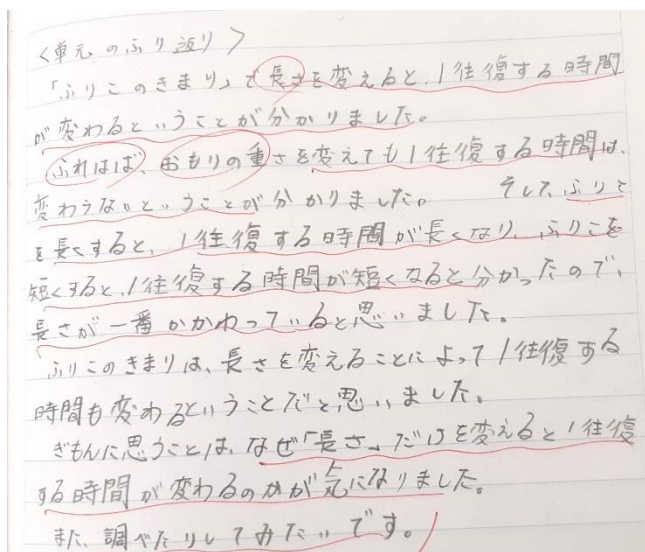 <単元のふり返り>
「ふりこのきまり」で長さを変えると、1往復する時間
が変わるということが分かりました。
ふれはば、おもりの重さを変えても1往復する時間は、
変わらないということが分かりました。 そして、ふりこ
を長くすると、1往復する時間が長くなり、ふりこを
短くすると、1往復する時間が短くなると分かったので、
長さが一番かかわっていると思いました。
ふりこのきまりは、長さを変えることによって1往復する
時間も変わるということだと思いました。
ぎもんに思うことは、なぜ「長さ」だけを変えると1往復
する時間が変わるのかが気になりました。
また、調べたりしてみたいです。